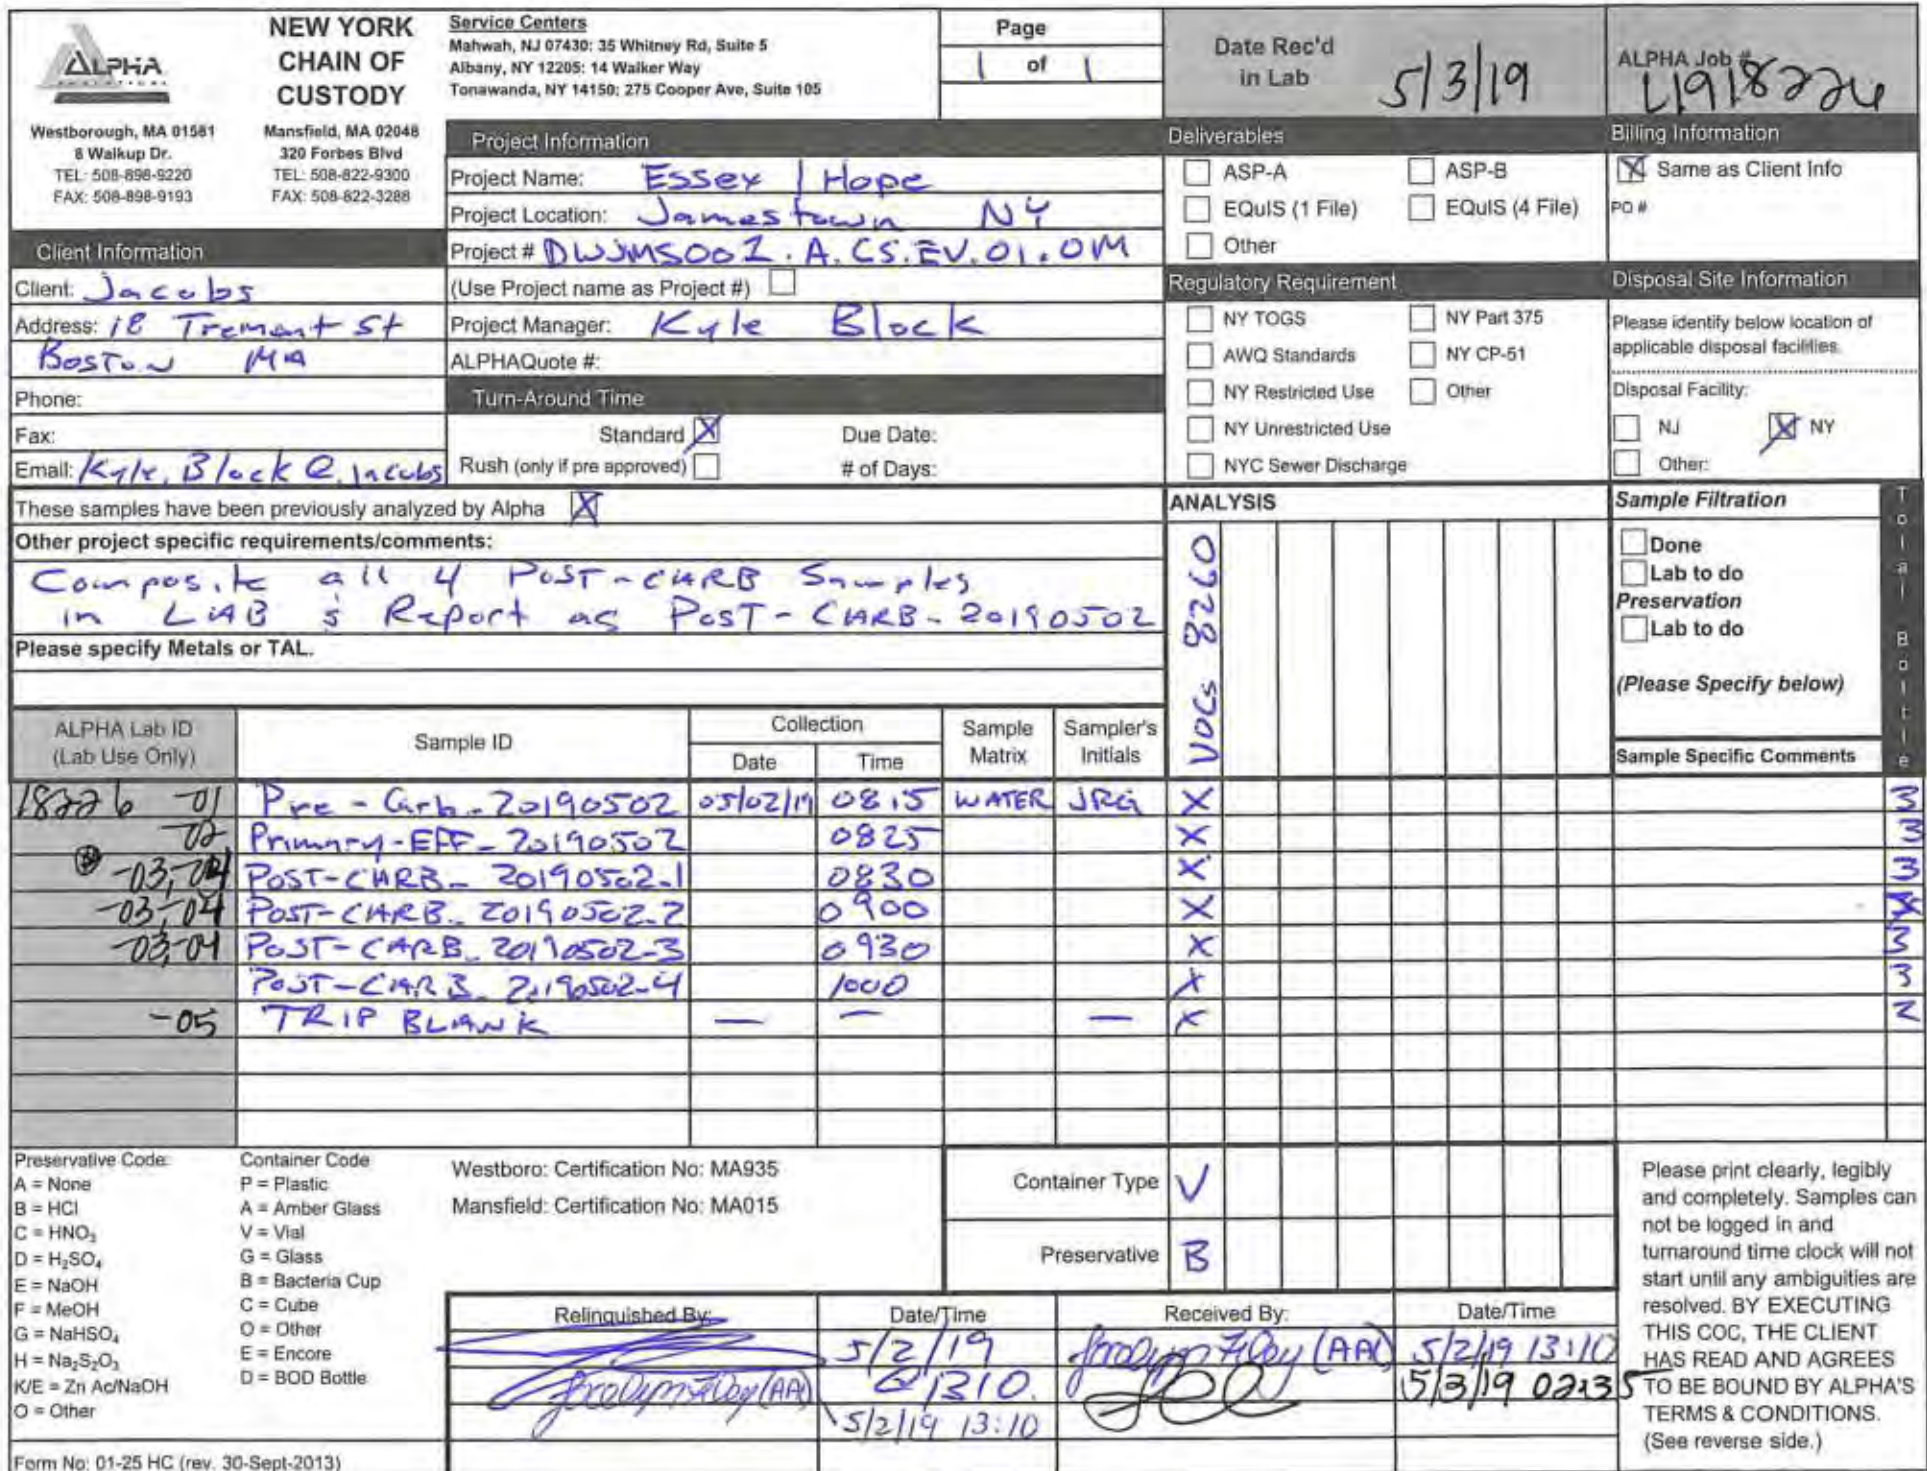 ALPHA
ANALYTICAL
NEW YORK
CHAIN OF
CUSTODY
Westborough, MA 01581
8 Walkup Dr.
TEL: 508-898-9220
FAX: 508-898-9193
Mansfield, MA 02048
320 Forbes Blvd
TEL: 508-822-9300
FAX: 508-822-3288
Service Centers
Mahwah, NJ 07430: 35 Whitney Rd, Suite 5
Albany, NY 12205: 14 Walker Way
Tonawanda, NY 14150: 275 Cooper Ave, Suite 105
Page
1 of 1
Date Rec'd
in Lab 5/3/19
ALPHA Job #
L1918226
Client Information
Client: Jacobs
Address: 18 Tremont St
Boston MA
Phone:
Fax:
Email: Kyle.Block@Jacobs
Project Information
Project Name: Essex / Hope
Project Location: Jamestown NY
Project # DWJMS002.A.CS.EV.01.OM
(Use Project name as Project #)
Project Manager: Kyle Block
ALPHAQuote #:
Turn-Around Time
Standard X Due Date:
Rush (only if pre approved) # of Days:
Deliverables
ASP-A ASP-B
EQuIS (1 File) EQuIS (4 File)
Other
Regulatory Requirement
NY TOGS NY Part 375
AWQ Standards NY CP-51
NY Restricted Use Other
NY Unrestricted Use
NYC Sewer Discharge
Billing Information
X Same as Client Info
PO #
Disposal Site Information
Please identify below location of
applicable disposal facilities.
Disposal Facility:
NJ X NY
Other:
These samples have been previously analyzed by Alpha X
Other project specific requirements/comments:
Composite all 4 POST-CARB Samples
in LAB & Report as POST-CARB-20190502
Please specify Metals or TAL.
ANALYSIS
VOCs 8260
Sample Filtration
Done
Lab to do
Preservation
Lab to do
(Please Specify below)
Total Bottle
ALPHA Lab ID
(Lab Use Only)
Sample ID
Collection
Date Time
Sample
Matrix
Sampler's
Initials
Sample Specific Comments
18226 -01 Pre-Carb-20190502 05/02/19 0815 WATER JRG X 3
-02 Primary-EFF-20190502 0825 X 3
-03,-04 POST-CARB-20190502-1 0830 X 3
-03,-04 POST-CARB-20190502-2 0900 X
-03,-04 POST-CARB-20190502-3 0930 X 3
POST-CARB-20190502-4 1000 X 3
-05 TRIP BLANK — — — X 2
Preservative Code:
A = None
B = HCl
C = HNO₃
D = H₂SO₄
E = NaOH
F = MeOH
G = NaHSO₄
H = Na₂S₂O₃
K/E = Zn Ac/NaOH
O = Other
Container Code
P = Plastic
A = Amber Glass
V = Vial
G = Glass
B = Bacteria Cup
C = Cube
O = Other
E = Encore
D = BOD Bottle
Westboro: Certification No: MA935
Mansfield: Certification No: MA015
Container Type V
Preservative B
Relinquished By: Date/Time Received By: Date/Time
5/2/19 (AA) 5/2/19 13:10
(AA) @1310 5/3/19 0235
5/2/19 13:10
Please print clearly, legibly
and completely. Samples can
not be logged in and
turnaround time clock will not
start until any ambiguities are
resolved. BY EXECUTING
THIS COC, THE CLIENT
HAS READ AND AGREES
TO BE BOUND BY ALPHA'S
TERMS & CONDITIONS.
(See reverse side.)
Form No: 01-25 HC (rev. 30-Sept-2013)